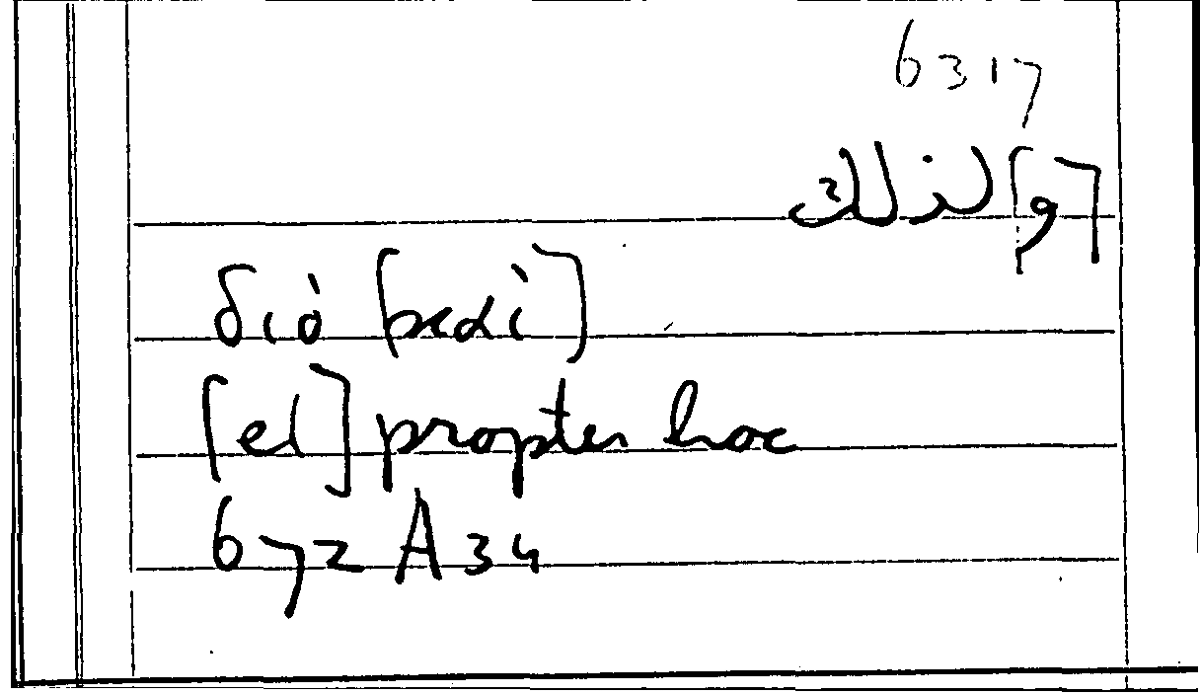 6317
[و] لذلك
διὸ [καὶ]
[et] propter hoc
672 A34